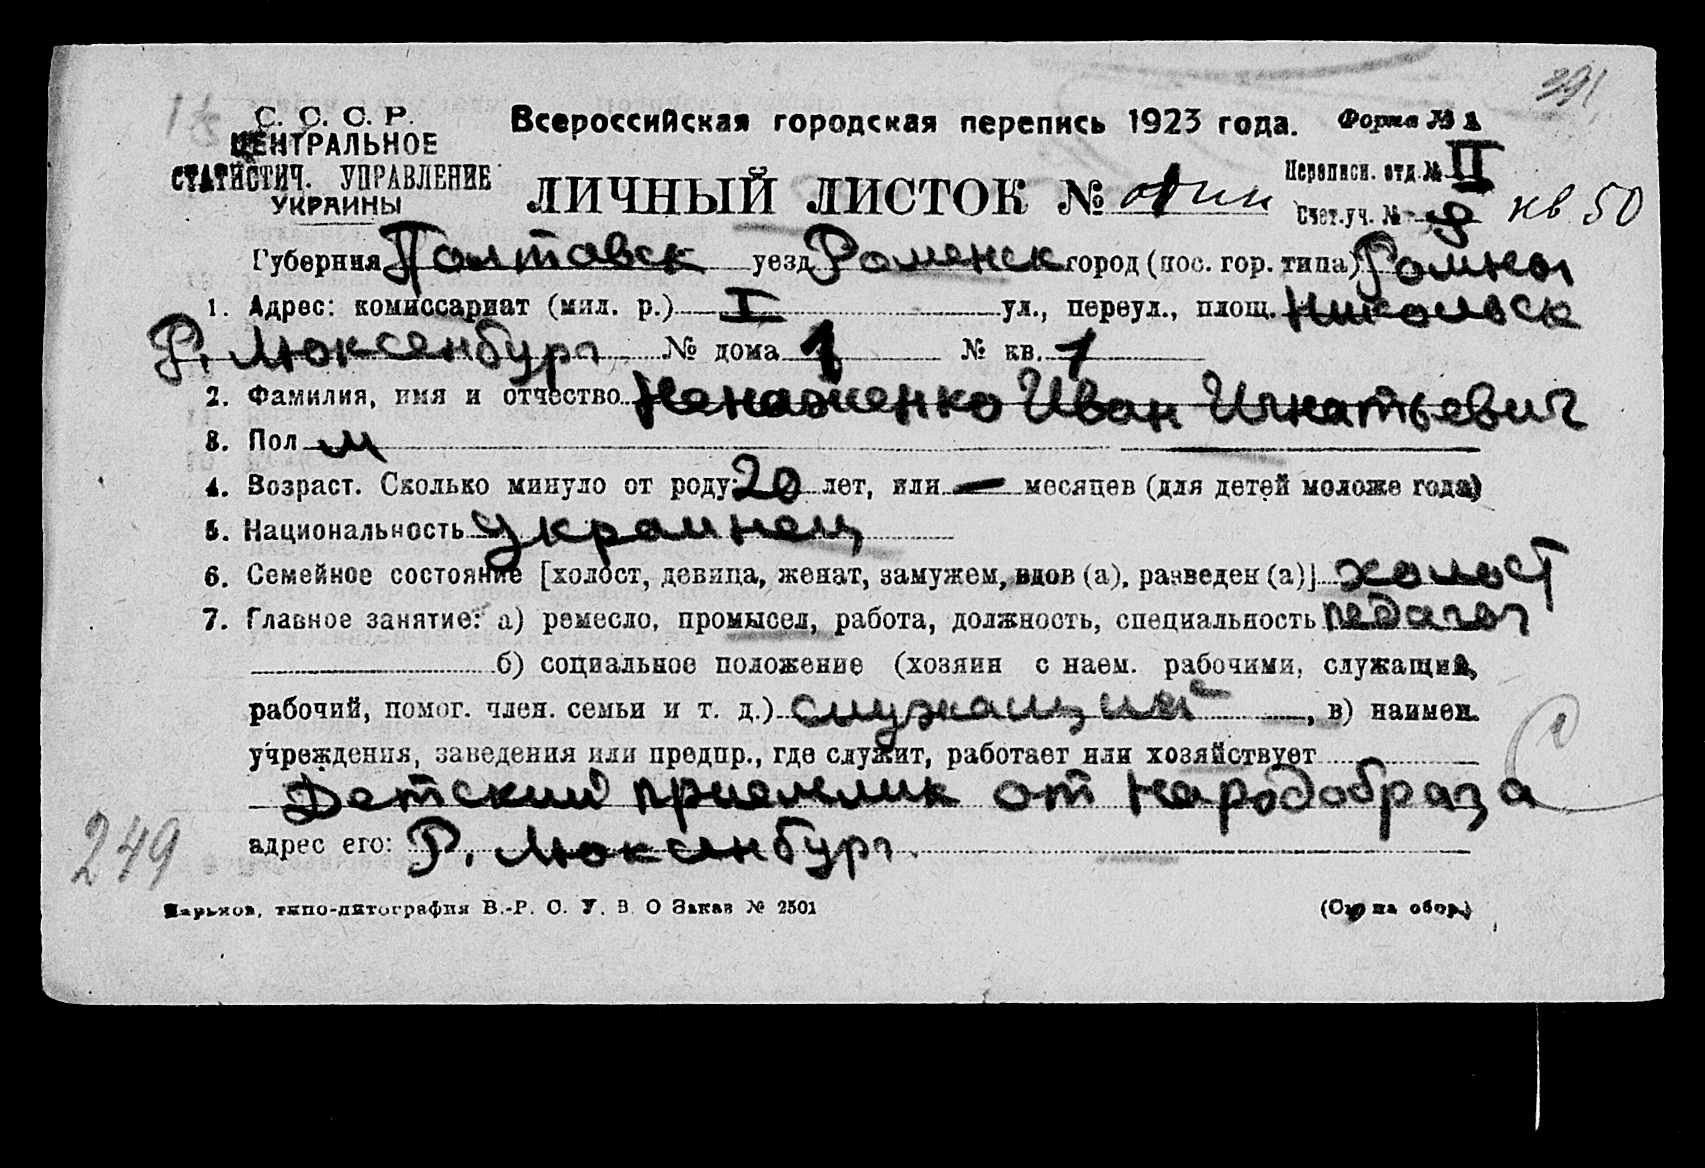 391
С. С. С. Р.
ЦЕНТРАЛЬНОЕ
СТАТИСТИЧ. УПРАВЛЕНИЕ
УКРАИНЫ
Всероссийская городская перепись 1923 года.
Форма № 1
ЛИЧНЫЙ ЛИСТОК № один
Переписн. отд. № II
Счет. уч. № 9 кв 50
Губерния Полтавск уезд Роменск город (пос. гор. типа) Ромны
1. Адрес: комиссариат (мил. р.) I ул., переул., площ. Никольск
Р. Люксенбург № дома 1 № кв. 1
2. Фамилия, имя и отчество Ненаженко Иван Игнатьевич
3. Пол м
4. Возраст. Сколько минуло от роду: 20 лет, или — месяцев (для детей моложе года)
5. Национальность украинец
6. Семейное состояние [холост, девица, женат, замужем, вдов (а), разведен (а)] холост
7. Главное занятие: а) ремесло, промысел, работа, должность, специальность педагог
б) социальное положение (хозяин с наем. рабочими, служащий,
рабочий, помог. член. семьи и т. д.) служащий, в) наимен.
учреждения, заведения или предпр., где служит, работает или хозяйствует
Детский приемник от Народобраза
адрес его: Р. Люксенбург.
249
Харьков, типо-литография В.-Р. С. У. В. О Заказ № 2501
(См на обор.)